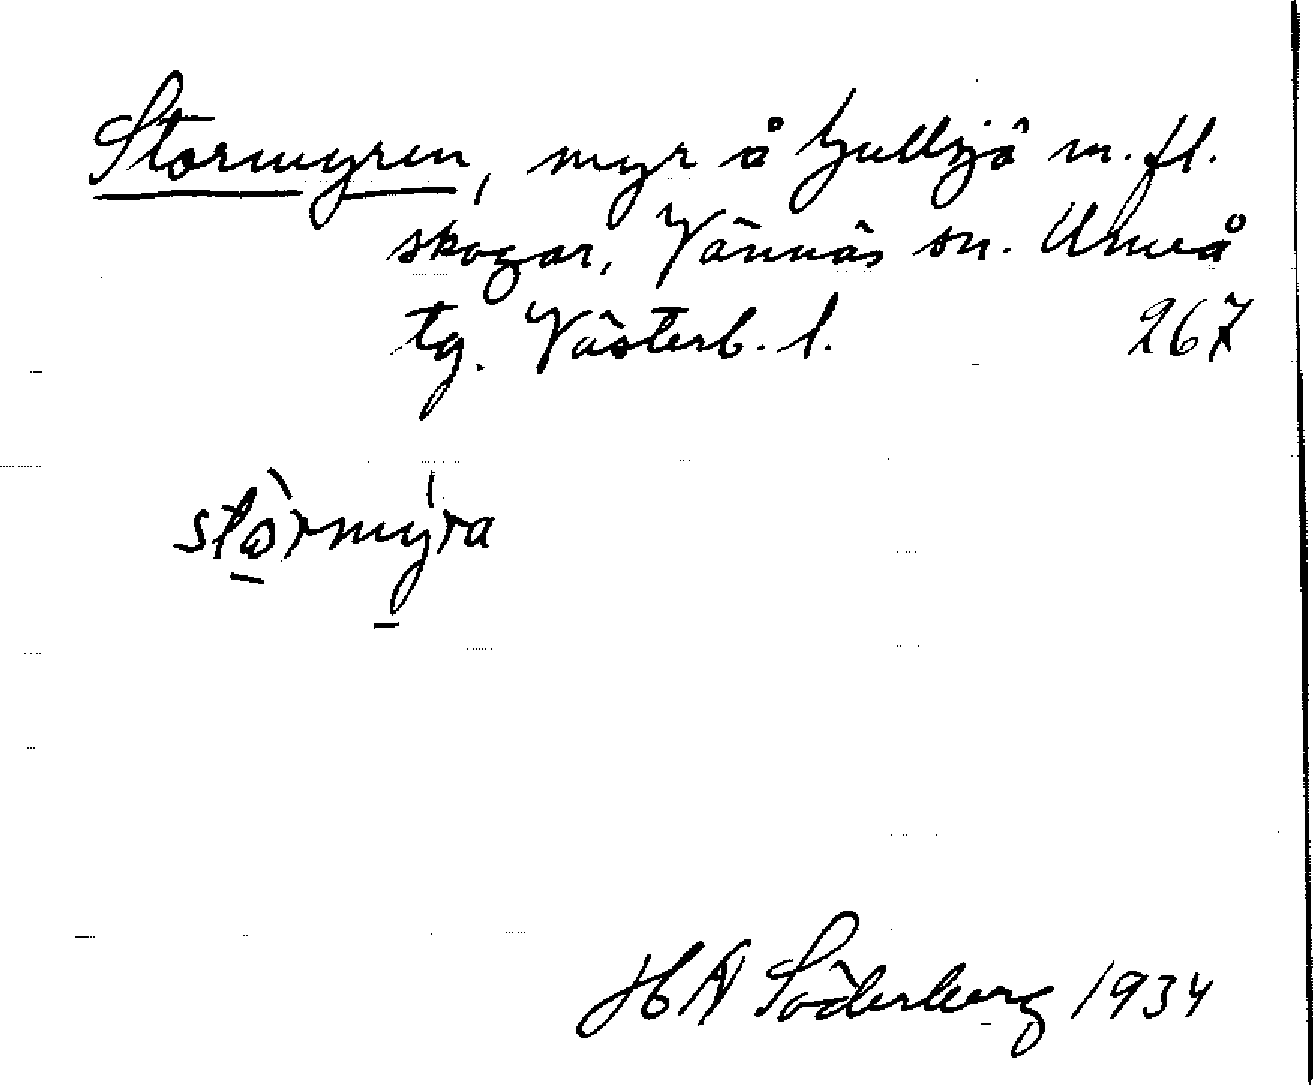 Stormyren, myr å Gullsjö m. fl.
skogar, Vännäs sn. Umeå
tg. Västerb. l. 267
stòrmýra
H Å Söderberg 1934